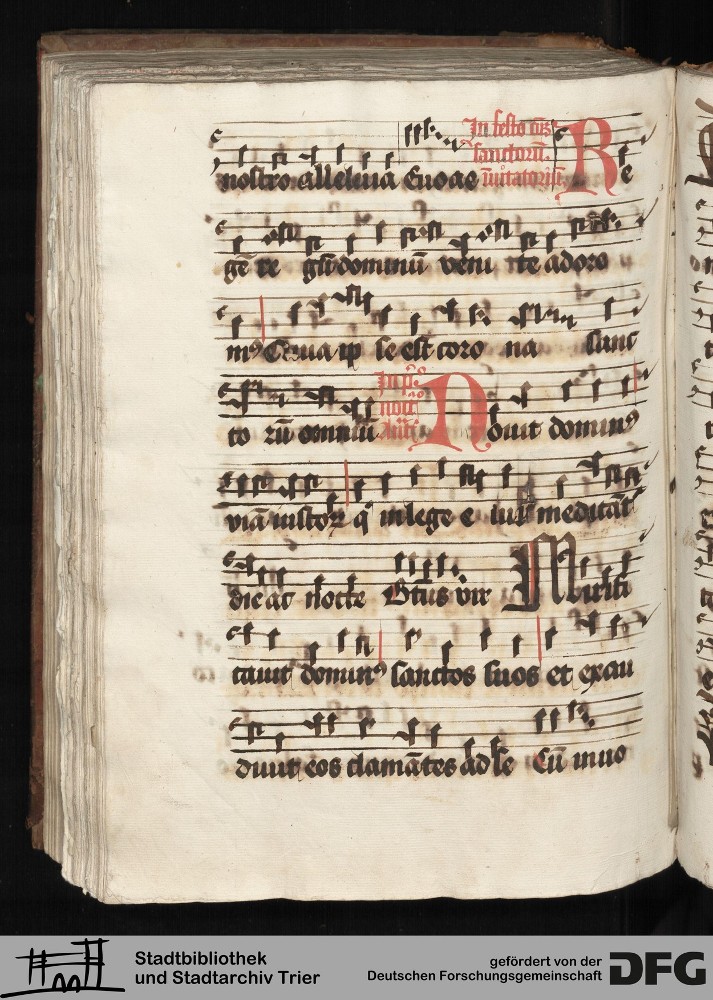 nostro alleluia Euoae In festo oīm
sanctorū.
īuitatoriū. Re
gē re gū dominū veni te adoro
mꝰ Qui a ip se est coro na sanc
to rū omniū In pº
noct̄
Ant̄ Nouit dominꝰ
viā iustoꝝ q̇ in lege e iuſ meditāt
die ac nocte Btūs vir Mirifi
cauit dominꝰ sanctos suos et exau
diuit eos clamātes ad se Cū inuo
Stadtbibliothek
und Stadtarchiv Trier
gefördert von der
Deutschen Forschungsgemeinschaft DFG